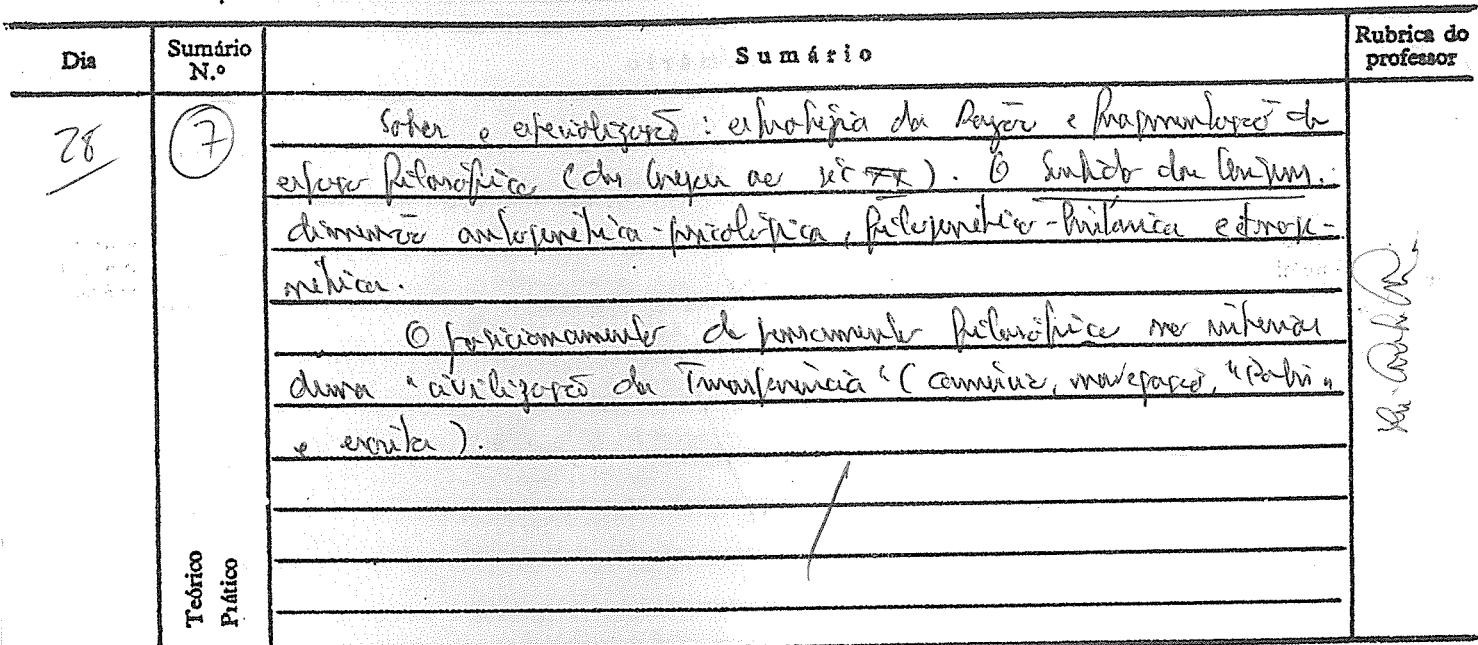 Dia
Sumário N.º
Sumário
Rubrica do professor
28
7
Saber e especialização: estratégia da Razão e fragmentação do
espaço filosófico (da Grécia ao séc XX). O Sentido da
dimensão ontogenética-psicológica, filogenético- e etnoge-
nética.
O posicionamento do pensamento filosófico no interior
duma "civilização da Transferência" (comércio, navegação,
e escrita).
Teórico
Prático